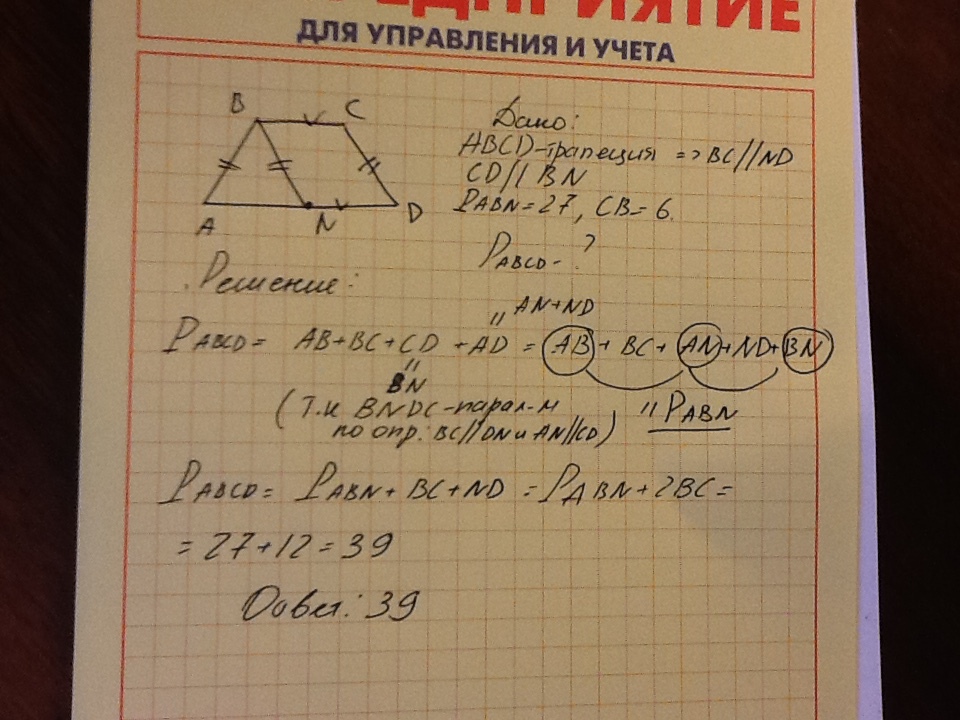 ДЛЯ УПРАВЛЕНИЯ И УЧЕТА
B C
A N D
Дано:
ABCD-трапеция => BC//ND
CD//BN
PABN=27, CB=6.
PABCD-?
Решение:
" AN+ND
PABCD= AB+BC+CD+AD = AB+BC+AN+ND+BN
"
BN
(т.к BNDC-парал-м " PABN
по опр. BC//DN и AN//CD)
PABCD= PABN+BC+ND =PABN+2BC=
=27+12=39
Ответ: 39